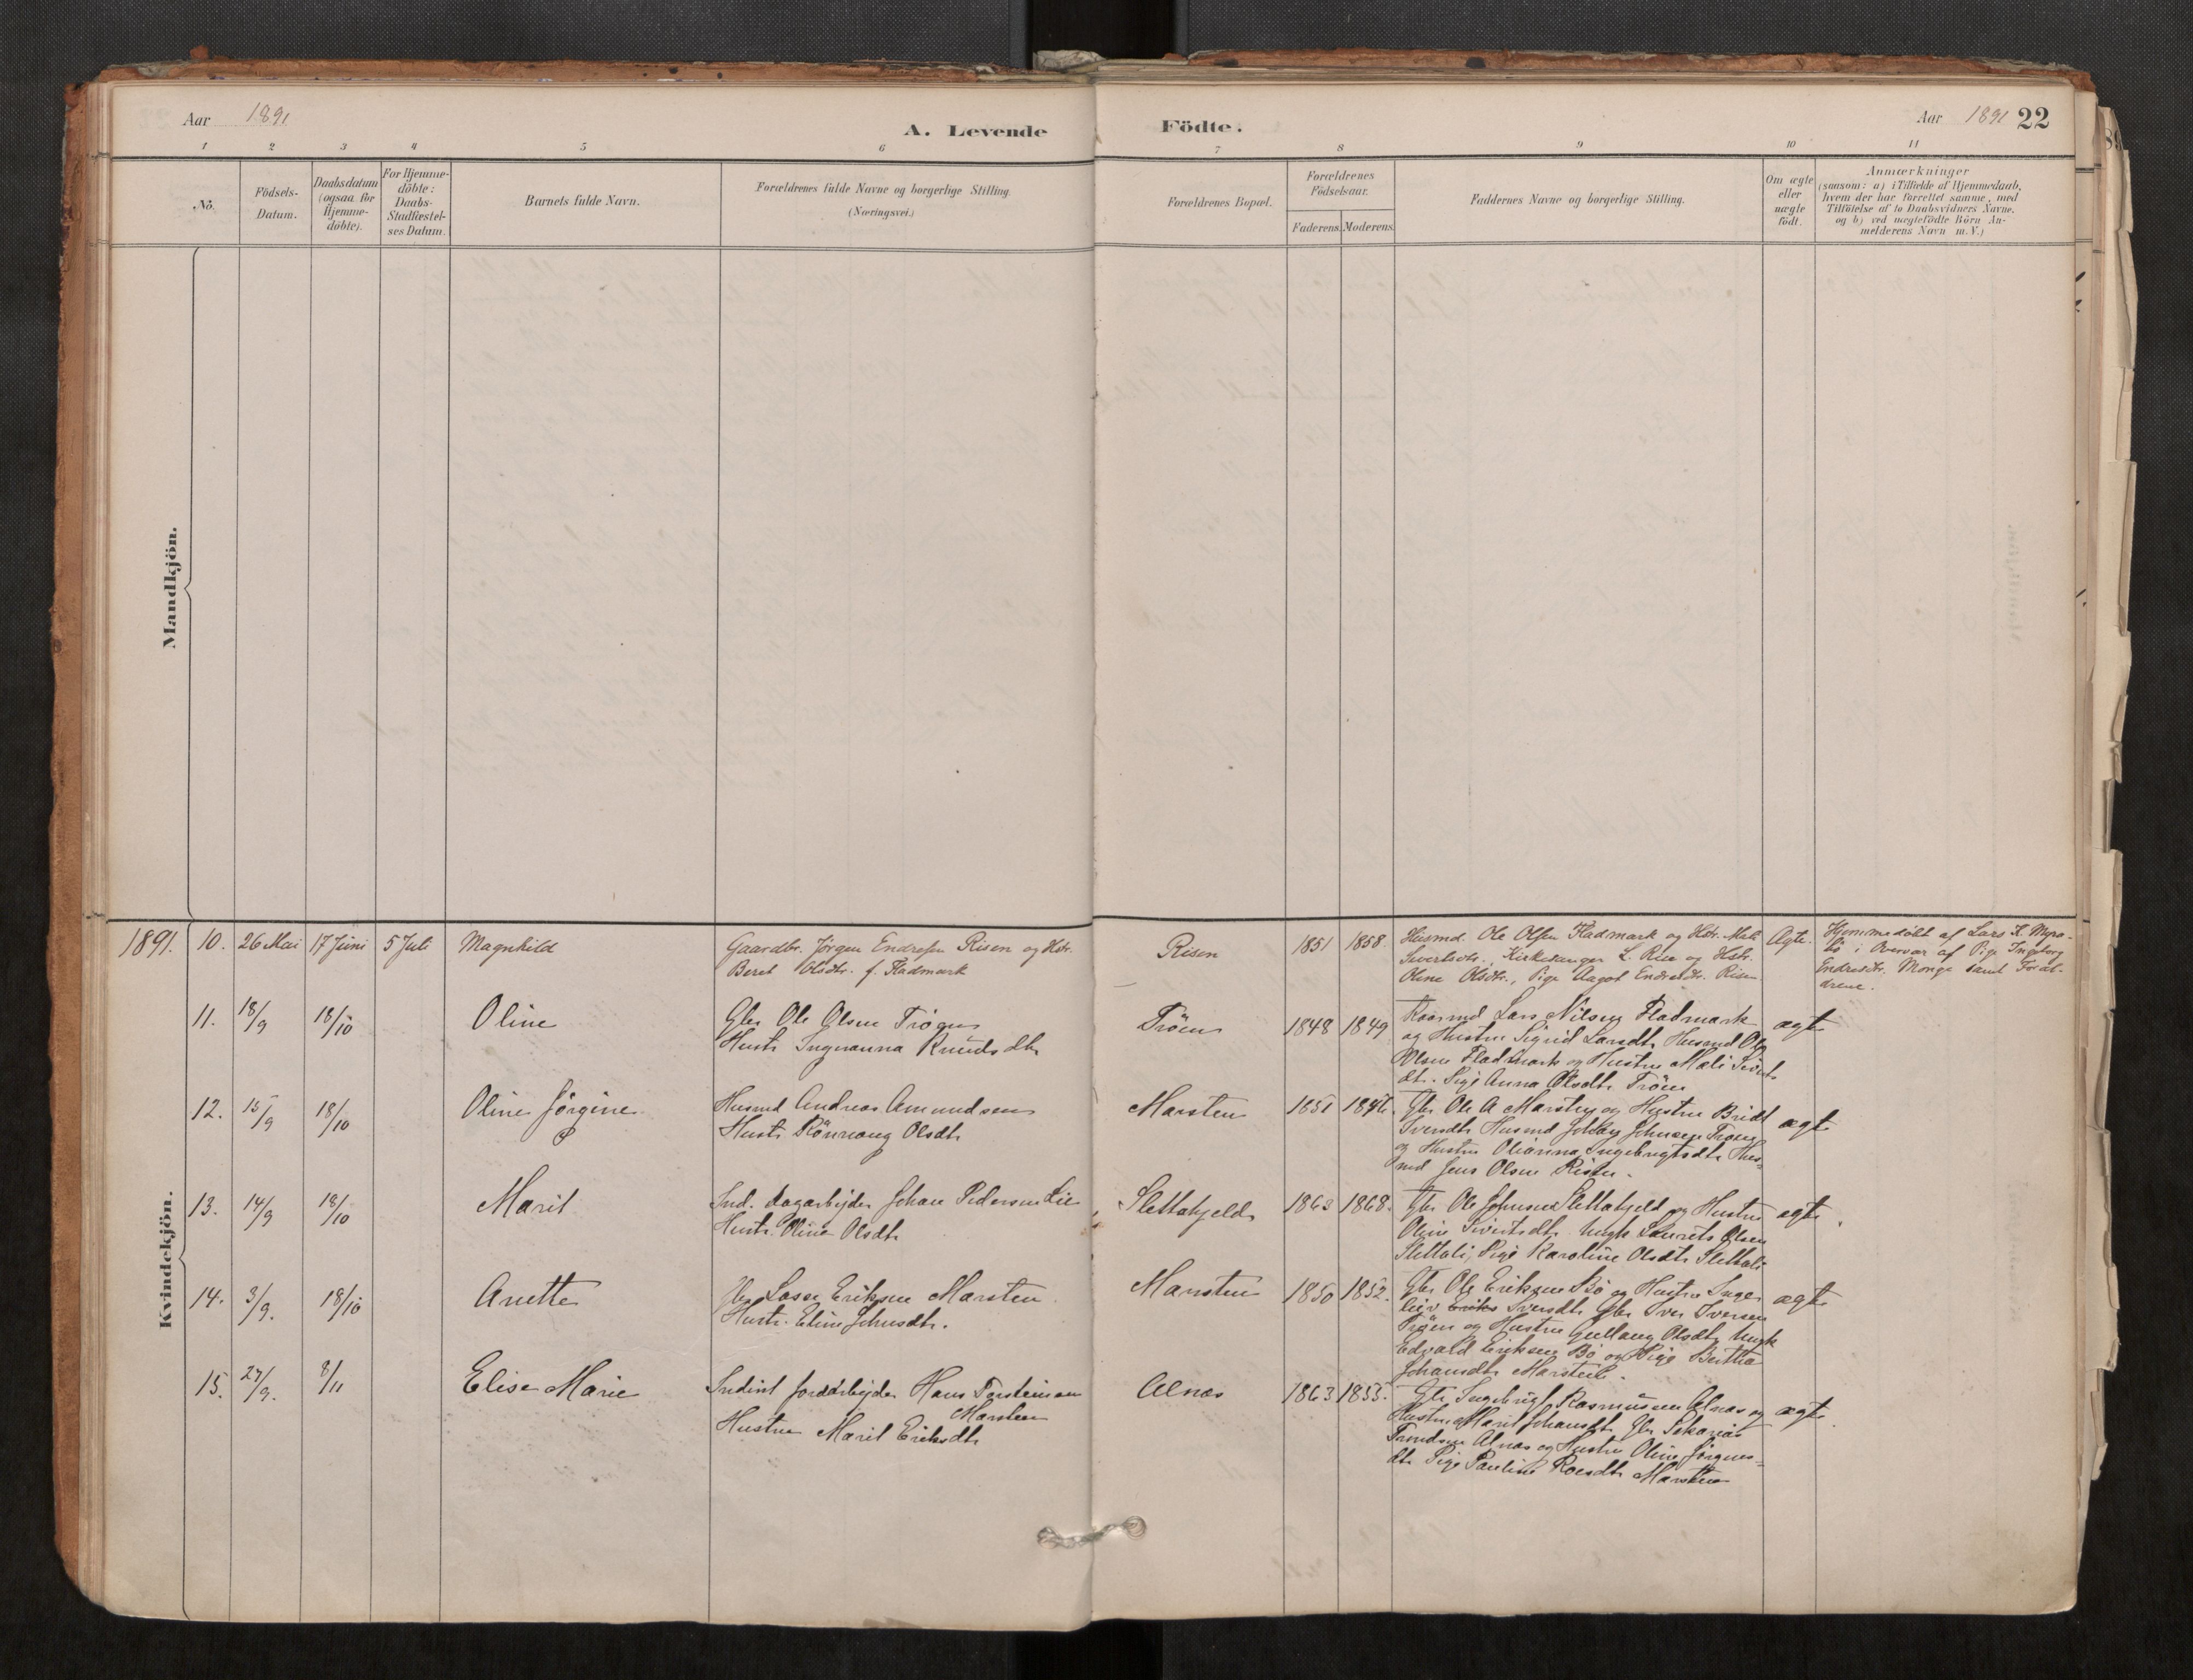 Aar 1891
A. Levende
Födte.
Aar 1891 22
1 2 3 4 5 6 7 8 9 10 11
No.
Födsels-
Datum.
Daabsdatum
(ogsaa for
Hjemme-
döbte).
For Hjemme-
döbte:
Daabs-
Stadfæstel-
ses Datum.
Barnets fulde Navn.
Forældrenes fulde Navne og borgerlige Stilling.
(Næringsvei.)
Forældrenes Bopæl.
Forældrenes
Födselsaar.
Faderens. Moderens.
Faddernes Navne og borgerlige Stilling.
Om ægte
eller
uægte
födt.
Anmærkninger
(saasom: a) i Tilfælde af Hjemmedaab,
hvem der har forrettet samme, med
Tilföielse af to Daabsvidners Navne,
og b) ved uægtefödte Börn An-
melderens Navn m. V.)
Mandkjön.
Kvindekjön.
1891. 10. 26 Mai 17 Juni 5 Juli Magnhild
Gaardbr. Jörgen Endresen Risen og Hstr.
Beret Olsdtr. f. Fladmark
Risen 1851 1858.
Husmd. Ole Olsen Fladmark og Hstr. Mali
Sivertsdtr., Kirkesanger L. Rise og Hstr.
Oline Olsdtr., Pige Aagot Endresdtr. Risen
Ægte.
Hjemmedöbt af Lars K. Myra-
bö i Overvær af Pige Ingeborg
Endresdtr. Monge samt Foræl-
drene.
11. 18/9 18/10 Oline
Gbr Ole Olsen Tröen
Hustr Ingeranna Knudsdtr
Tröen 1848 1849
Kaarmd Lars Nilsen Fladmark
og Hustru Sigrid Larsdtr Husmd Ole
Olsen Fladmark og Hustru Mali Sivert
dtr. Pige Anna Olsdtr Tröen
ægte
12. 15/9 18/10 Oline Jörgine
Husmd Andreas Amundsen
Hustr Rönnaug Olsdtr
Marsten 1851 1846.
Gbr Ole A Marsten og Hustru Bridt
Iversdtr Husmd Johnsen Tröen
og Hustru Olianna Ingebrigtsdtr Hus-
md Jens Olsen Risen.
ægte
13. 14/9 18/10 Marit
Ind. dagarbejder Johan Pedersen Lie
Hustr. Oline Olsdtr
Slettahjeld 1863 1868.
Gbr Ole Johnsen Slettahjeld og Hustru
Oline Sivertsdtr. Ungk Laurits Olsen
Slettali, Pige Karoline Olsdtr Slettali
ægte
14. 3/9. 18/10 Anette
Gbr Lasse Eriksen Marsten
Hustr. Eline Johnsdtr.
Marsten 1850 1852.
Gbr Ole Eriksen Bö og Hustru Inge-
leiv Eriks Iversdtr Gbr Iver Iversen
Tröen og Hustru Gullaug Olsdtr Ungk
Edvald Eriksen Bö og Pige Beritha
Johansdtr Marstein.
ægte
15. 27/9. 8/11 Elise Marie
Indint jordarbejder Hans Torsteinsen
Marsten
Hustru Marit Eriksdtr
Alnæs 1863 1855.
Gbr Ingebrigt Rasmussen Alnæs og
Hustru Marit Johansdtr Gbr Sakarias
Trondsen Alnæs og Hustru Oline Jörgens-
dtr Pige Pauline Roesdtr Marsten
ægte